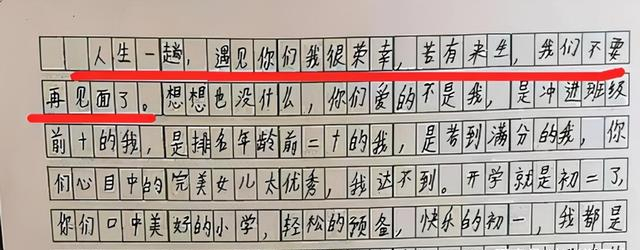 人生一趟，遇见你们我很荣幸，若有来生，我们不要
再见面了。想想也没什么，你们爱的不是我，是冲进班级
前十的我，是排名年龄前二十的我，是考到满分的我，你
们心目中的完美女儿太优秀，我达不到。开学就是初二了，
你们口中美好的小学，轻松的预备，快乐的初一，我都是